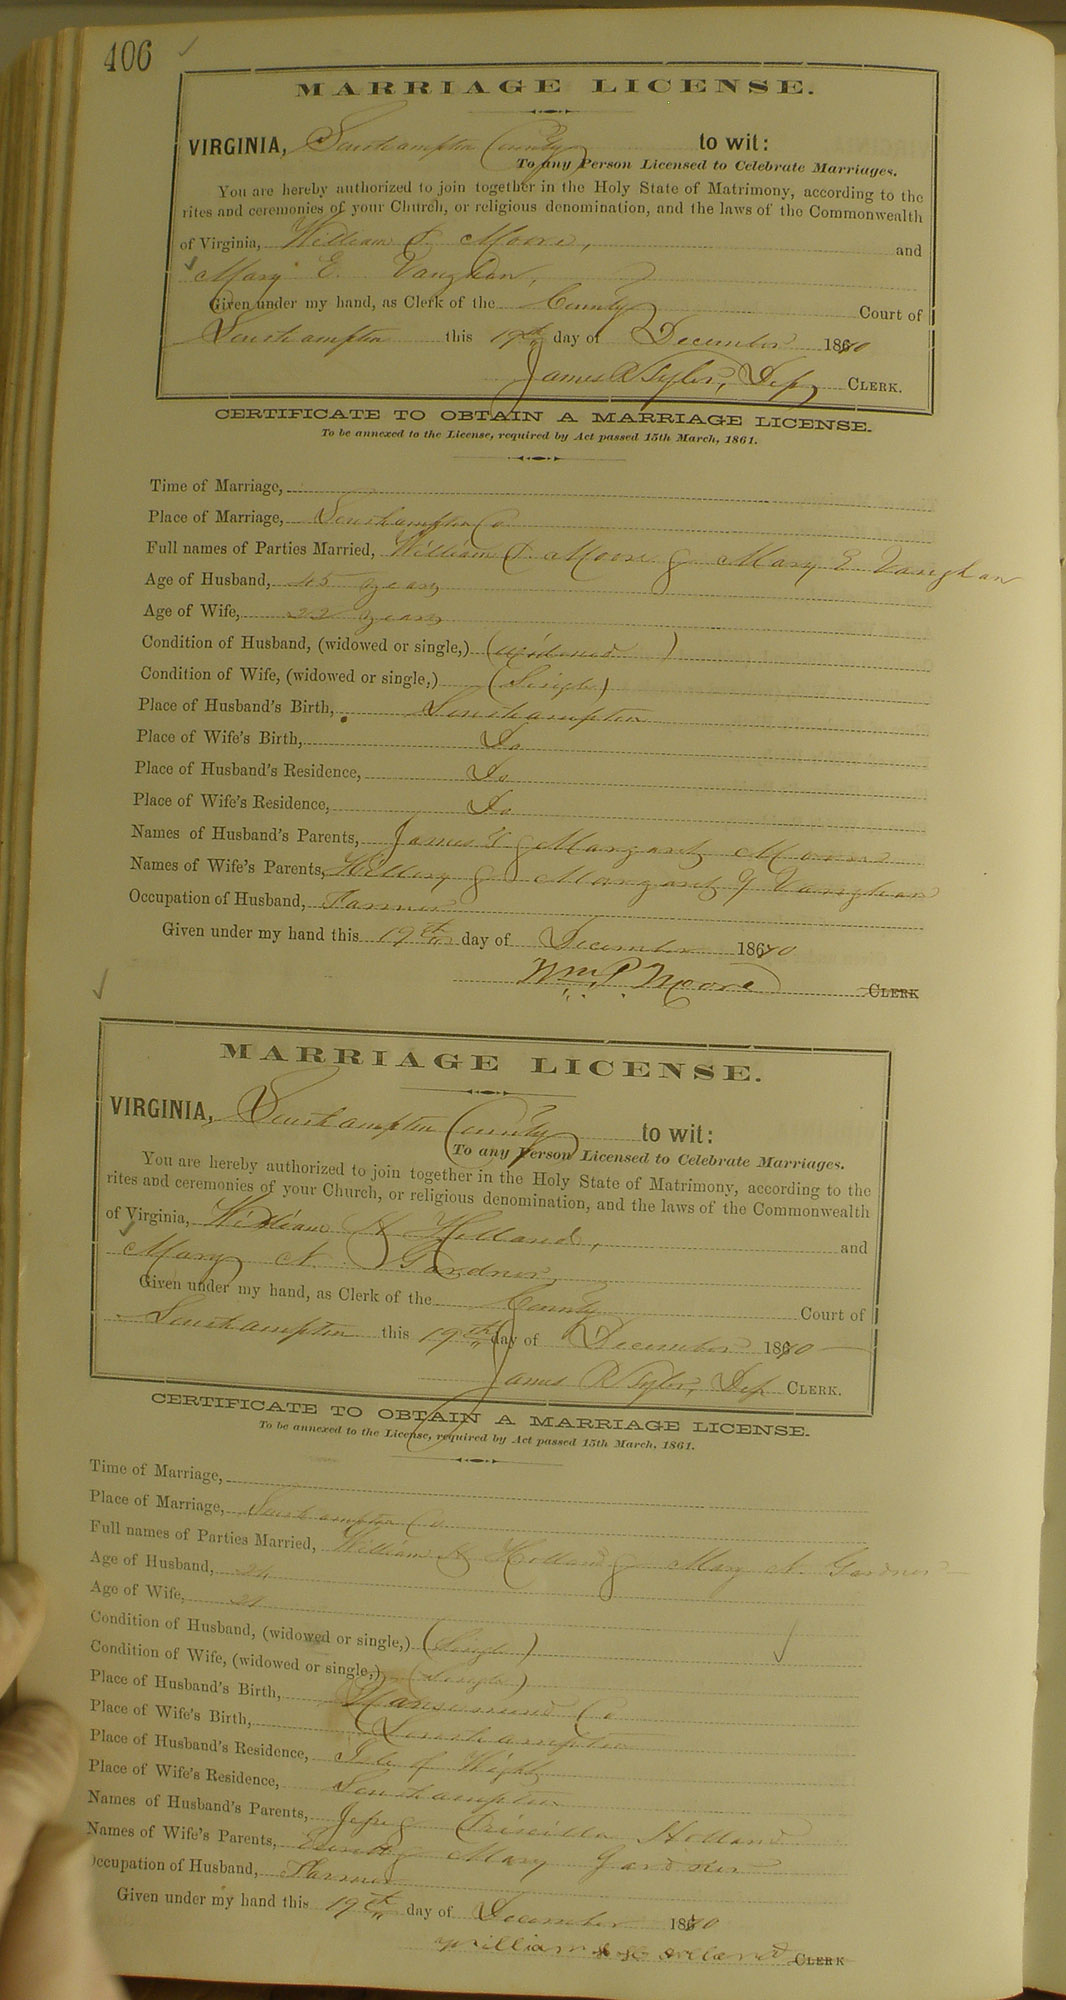 406
MARRIAGE LICENSE.
VIRGINIA, Southampton County to wit:
To any Person Licensed to Celebrate Marriages.
You are hereby authorized to join together in the Holy State of Matrimony, according to the
rites and ceremonies of your Church, or religious denomination, and the laws of the Commonwealth
of Virginia, William P. Moore, and
Mary E. Vaughan,
Given under my hand, as Clerk of the County Court of
Southampton this 19th day of December 1870
James R Tyler, Dep CLERK.
CERTIFICATE TO OBTAIN A MARRIAGE LICENSE.
To be annexed to the License, required by Act passed 15th March, 1861.
Time of Marriage,
Place of Marriage, Southampton Co
Full names of Parties Married, William P. Moore & Mary E Vaughan
Age of Husband, 45 years
Age of Wife, 22 years
Condition of Husband, (widowed or single,) (widowed)
Condition of Wife, (widowed or single,) (Single)
Place of Husband's Birth, Southampton
Place of Wife's Birth, Do
Place of Husband's Residence, Do
Place of Wife's Residence, Do
Names of Husband's Parents, James & Margaret Moore
Names of Wife's Parents, & Margaret Vaughan
Occupation of Husband, Farmer
Given under my hand this 19th day of December 1870
Wm P. Moore CLERK
MARRIAGE LICENSE.
VIRGINIA, Southampton County to wit:
To any Person Licensed to Celebrate Marriages.
You are hereby authorized to join together in the Holy State of Matrimony, according to the
rites and ceremonies of your Church, or religious denomination, and the laws of the Commonwealth
of Virginia, William H Holland, and
Mary A. Gardner,
Given under my hand, as Clerk of the County Court of
Southampton this 19th day of December 1870
James R Tyler, Dep CLERK.
CERTIFICATE TO OBTAIN A MARRIAGE LICENSE.
To be annexed to the License, required by Act passed 15th March, 1861.
Time of Marriage,
Place of Marriage, Southampton Co
Full names of Parties Married, William H Holland & Mary A. Gardner
Age of Husband, 24
Age of Wife, 21
Condition of Husband, (widowed or single,) (Single)
Condition of Wife, (widowed or single,) (Single)
Place of Husband's Birth, Nansemond Co
Place of Wife's Birth, Southampton
Place of Husband's Residence, Isle of Wight
Place of Wife's Residence, Southampton
Names of Husband's Parents, Jesse & Priscilla Holland
Names of Wife's Parents, & Mary Gardner
Occupation of Husband, Farmer
Given under my hand this 19th day of December 1870
William H Holland CLERK